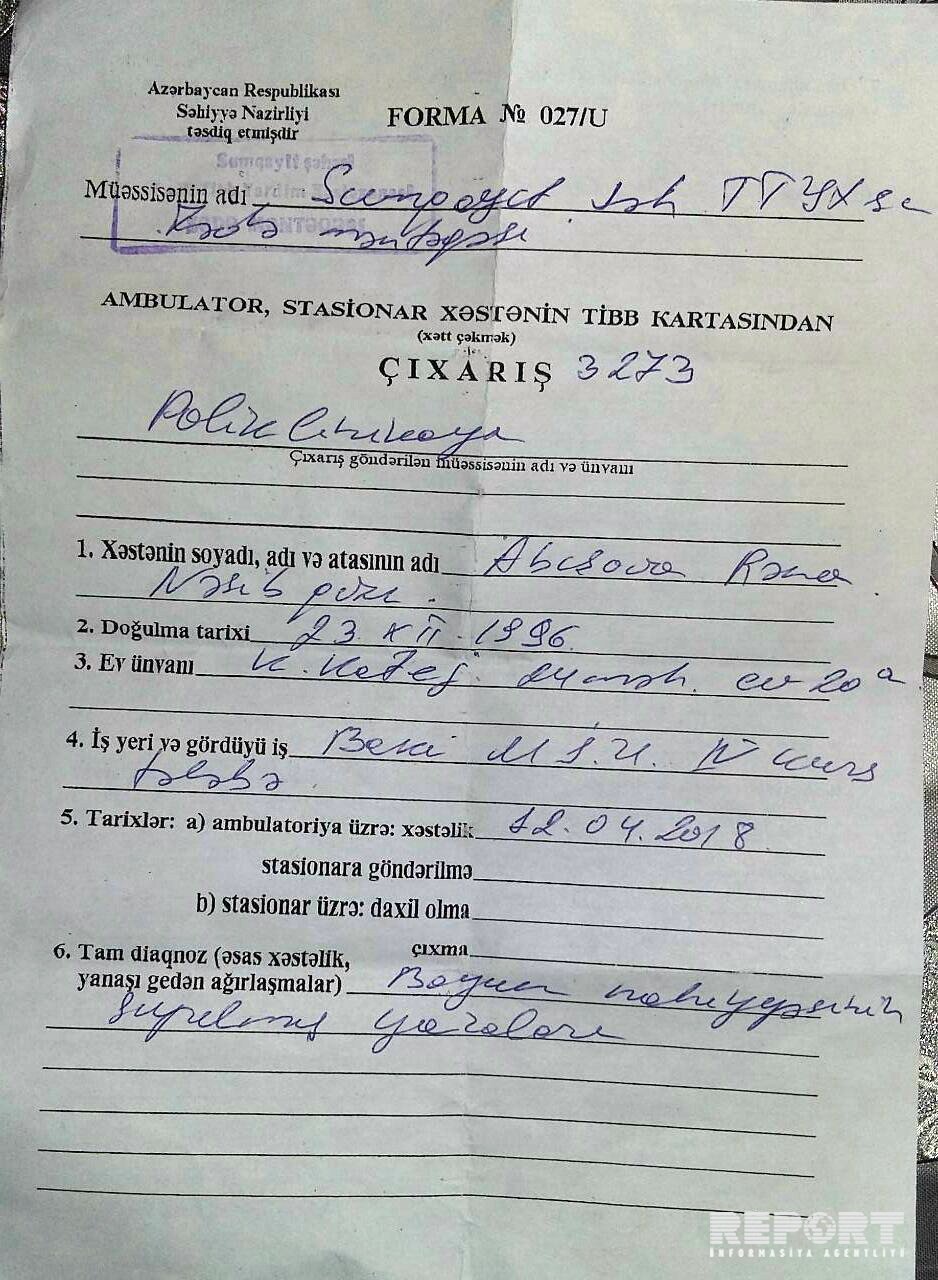 Azərbaycan Respublikası
Səhiyyə Nazirliyi
təsdiq etmişdir
FORMA № 027/U
Sumqayıt şəhəri
Müəssisənin adı Sumqayıt şəh TTYX
məntəqəsi
AMBULATOR, STASİONAR XƏSTƏNİN TİBB KARTASINDAN
(xətt çəkmək)
ÇIXARIŞ 3273
Poliklinikaya
Çıxarış göndərilən müəssisənin adı və ünvanı
1. Xəstənin soyadı, adı və atasının adı Abışova Rəna
Nəsib qızı.
2. Doğulma tarixi 23.XII.1996
3. Ev ünvanı ev 20a
4. İş yeri və gördüyü iş Bakı IV kurs
tələbə
5. Tarixlər: a) ambulatoriya üzrə: xəstəlik 12.04.2018
stasionara göndərilmə
b) stasionar üzrə: daxil olma
çıxma
6. Tam diaqnoz (əsas xəstəlik,
yanaşı gedən ağırlaşmalar) Boyun nahiyyəsinin
yaraları
REPORT
İNFORMASİYA AGENTLİYİ